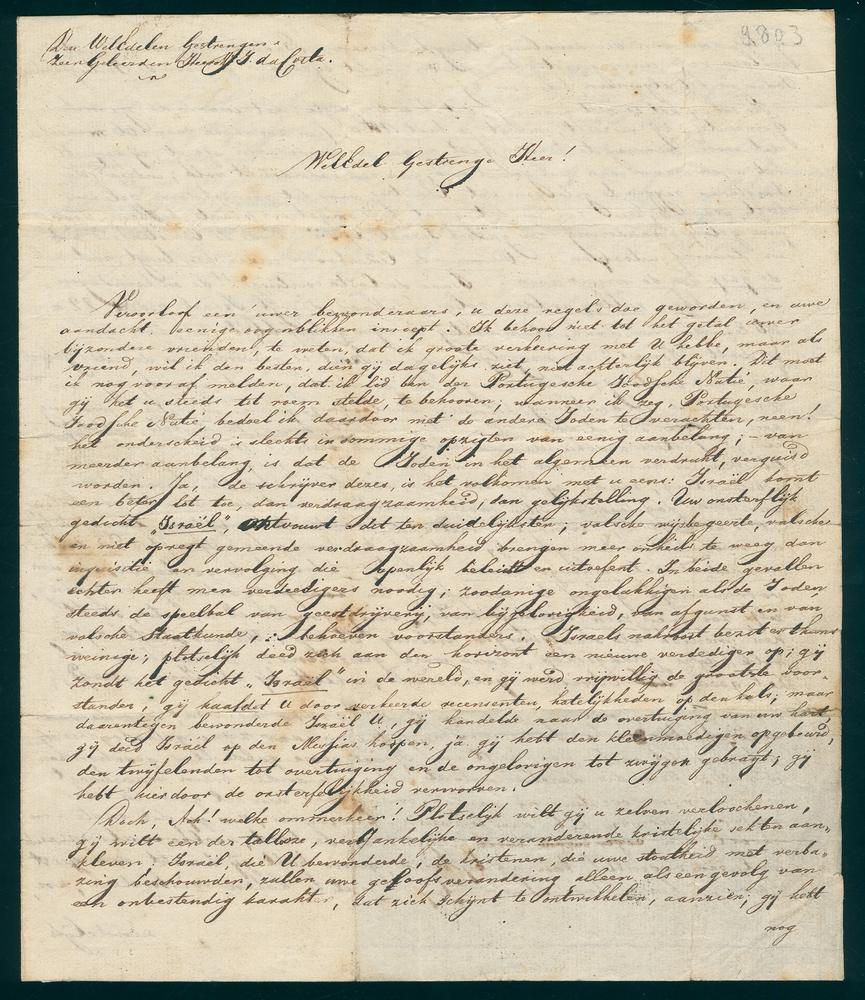 9803
Den WelEdelen Gestrengen
Zeer Geleerden Heer Mr I. da Costa.
WelEdel Gestrenge Heer!
Veroorloof een uwer bewonderaars, u deze regels doe geworden, en uwe
aandacht, eenige oogenblikken inroept. Ik behoor niet tot het getal uwer
bijzondere vrienden, te weten, dat ik groote verkeering met U hebbe, maar als
vriend, wil ik den besten, dien gij dagelijks ziet, niet achterlijk blijven. Dit moet
ik nog vooraf melden, dat ik lid ben der Portugesche Joodsche Natie, waar
gij het u steeds tot roem stelde, te behooren; wanneer ik zeg, Portugesche
Joodsche Natie, bedoel ik daardoor niet de andere Joden te verachten, neen!
het onderscheid is slechts in sommige opzigten van eenig aanbelang; - van
meerder aanbelang, is dat de Joden in het algemeen verdrukt, verguisd
worden. Ja, de schrijver dezes, is het volkomen met u eens: Israël komt
een beter lot toe, dan verdraagzaamheid, dan gelijkstelling. Uw onsterflijk
gedicht „Israël" ontvouwt dit ten duidelijksten; valsche wijsbegeerte valsche
en niet opregt gemeende verdraagzaamheid brengen meer onheils te weeg dan
inquisitie en vervolging die openlijk beleidt en uitoefent. In beide gevallen
echter heeft men verdeedigers noodig; zoodanige ongelukkigen als de Joden
steeds de speelbal van geestdrijverij, van bijgelovigheid, van afgunst en van
valsche Staatkunde, behoeven voorstanders. Israels nakroost bezit er thans
weinige; plotselijk deed zich aan den horizont een nieuwe verdediger op; gij
zondt het gedicht „Israël" in de wereld, en gij werd vrijwillig de grootste voor-
stander; gij haaldet U door verkeerde recensenten, hatelijkheden op den hals; maar
daarentegen bewonderde Israël U, gij handelde naar de overtuiging van uw hart,
gij deed Israël op den Messias hoopen, ja gij hebt den kleinmoedigen opgebeurd,
den twijfelenden tot overtuiging en de ongelovigen tot zwijgen gebragt; gij
hebt hierdoor de onsterfelijkheid verworven.
Doch, Ach! welke ommekeer! Plotselijk wilt gij u zelven verloochenen,
gij wilt een der tallooze, vergankelijke en veranderende kristelijke sekten aan-
kleven: Israël, die U bewonderde, de kristenen, die uwe stoutheid met verba-
zing beschouwden, zullen uwe geloofsverandering alleen als een gevolg van
een onbestendig karakter, dat zich schijnt te ontwikkelen, aanzien; gij hebt
nog